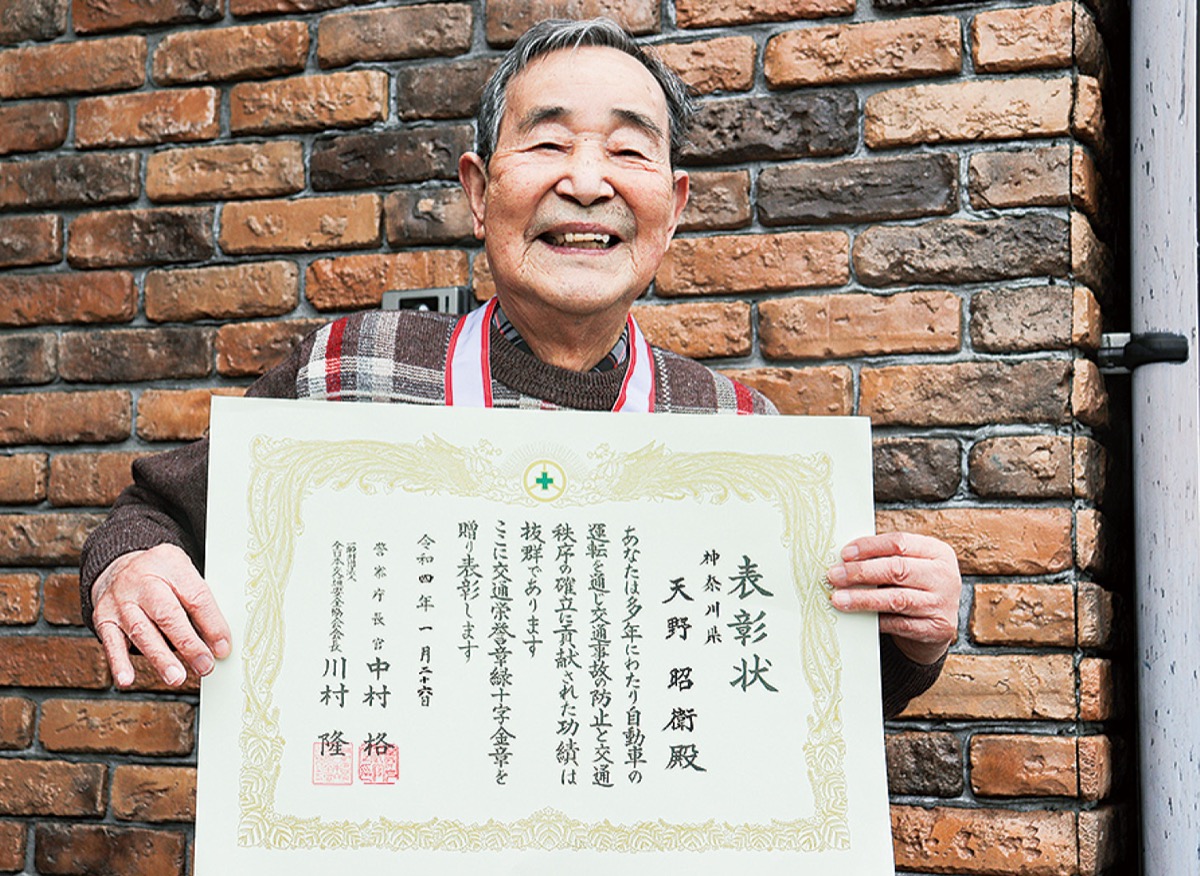 表彰状
神奈川県
天野昭衛殿
あなたは多年にわたり自動車の
運転を通じ交通事故の防止と交通
秩序の確立に貢献された功績は
抜群であります
ここに交通栄誉章緑十字金章を
贈り表彰します
令和四年一月二十六日
警察庁長官 中村 格
一般財団法人
全日本交通安全協会会長 川村 隆